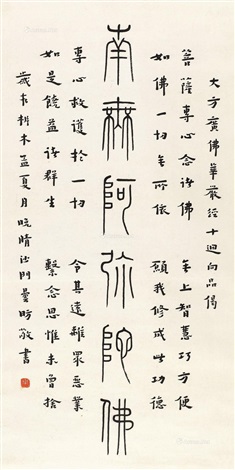 大方廣佛華嚴經十迴向品偈
菩薩專心念諸佛 無上智慧巧方便
如佛一切無所依 願我修成此功德
南無阿弥陀佛
專心救護於一切 令其遠離眾惡業
如是饒益諸群生 繫念思惟未曾捨
歲在析木孟夏月 晚晴沙門曇昉敬書